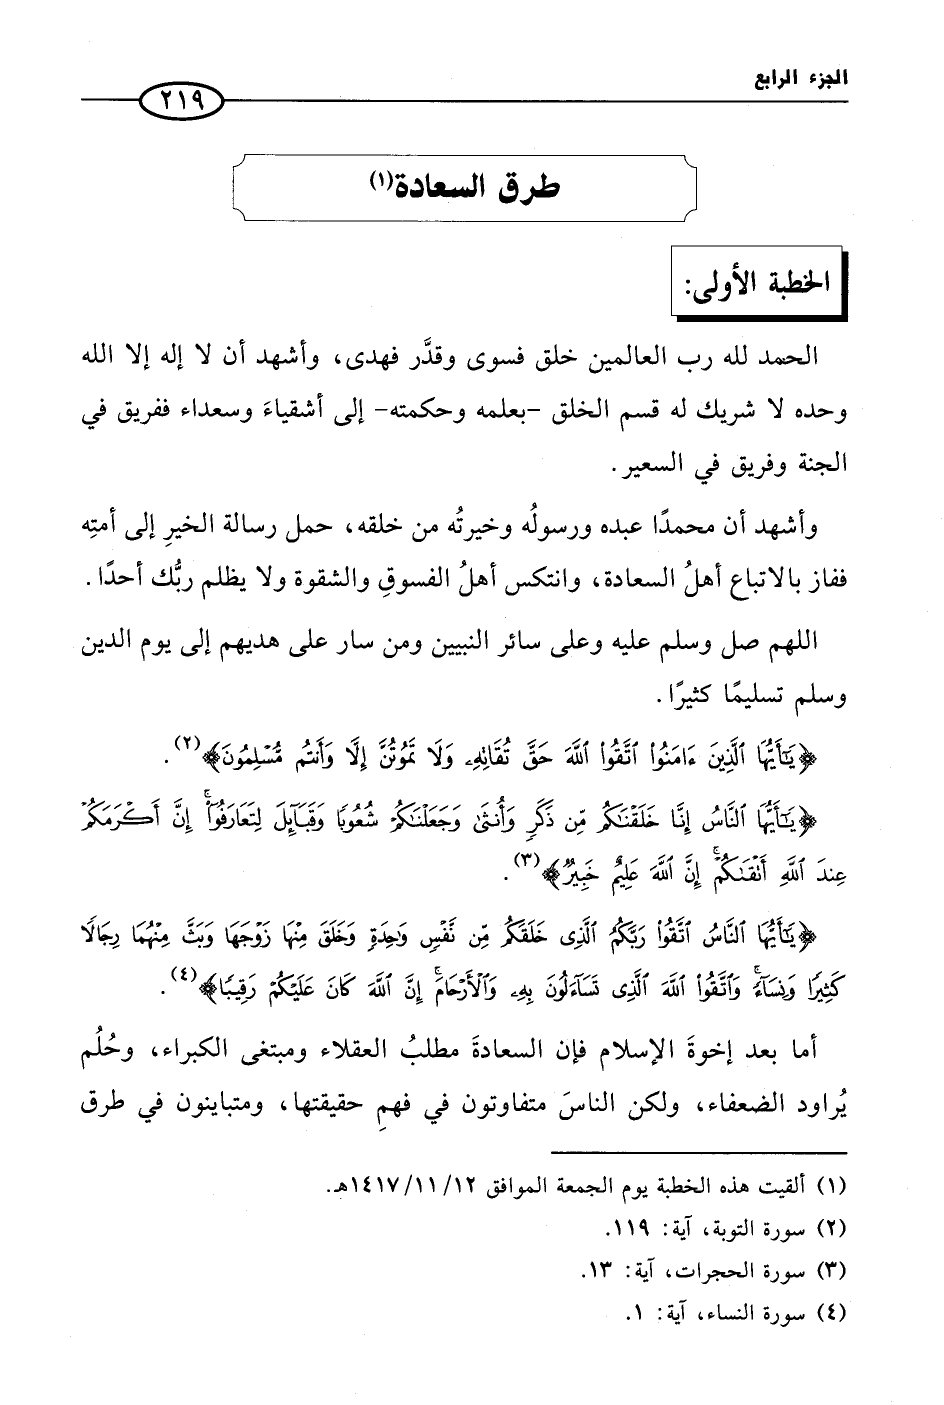 الجزء الرابع
٢١٩
طرق السعادة(١)
الخطبة الأولى:
الحمد لله رب العالمين خلق فسوى وقدَّر فهدى، وأشهد أن لا إله إلا الله
وحده لا شريك له قسم الخلق -بعلمه وحكمته- إلى أشقياءَ وسعداء ففريق في
الجنة وفريق في السعير.
وأشهد أن محمدًا عبده ورسولُه وخيرتُه من خلقه، حمل رسالة الخيرِ إلى أمتِه
ففاز بالاتباع أهلُ السعادة، وانتكس أهلُ الفسوقِ والشقوة ولا يظلم ربُّك أحدًا.
اللهم صل وسلم عليه وعلى سائر النبيين ومن سار على هديهم إلى يوم الدين
وسلم تسليمًا كثيرًا.
﴿يَٰٓأَيُّهَا ٱلَّذِينَ ءَامَنُوا۟ ٱتَّقُوا۟ ٱللَّهَ حَقَّ تُقَاتِهِۦ وَلَا تَمُوتُنَّ إِلَّا وَأَنتُم مُّسْلِمُونَ﴾(٢).
﴿يَٰٓأَيُّهَا ٱلنَّاسُ إِنَّا خَلَقْنَٰكُم مِّن ذَكَرٍ وَأُنثَىٰ وَجَعَلْنَٰكُمْ شُعُوبًا وَقَبَآئِلَ لِتَعَارَفُوٓا۟ ۚ إِنَّ أَكْرَمَكُمْ
عِندَ ٱللَّهِ أَتْقَىٰكُمْ ۚ إِنَّ ٱللَّهَ عَلِيمٌ خَبِيرٌ﴾(٣).
﴿يَٰٓأَيُّهَا ٱلنَّاسُ ٱتَّقُوا۟ رَبَّكُمُ ٱلَّذِى خَلَقَكُم مِّن نَّفْسٍ وَٰحِدَةٍ وَخَلَقَ مِنْهَا زَوْجَهَا وَبَثَّ مِنْهُمَا رِجَالًا
كَثِيرًا وَنِسَآءً ۚ وَٱتَّقُوا۟ ٱللَّهَ ٱلَّذِى تَسَآءَلُونَ بِهِۦ وَٱلْأَرْحَامَ ۚ إِنَّ ٱللَّهَ كَانَ عَلَيْكُمْ رَقِيبًا﴾(٤).
أما بعد إخوةَ الإسلام فإن السعادةَ مطلبُ العقلاء ومبتغى الكبراء، وحُلُم
يُراود الضعفاء، ولكن الناسَ متفاوتون في فهمِ حقيقتها، ومتباينون في طرق
(١) ألقيت هذه الخطبة يوم الجمعة الموافق ١٤١٧/١١/١٢هـ.
(٢) سورة التوبة، آية: ١١٩.
(٣) سورة الحجرات، آية: ١٣.
(٤) سورة النساء، آية: ١.